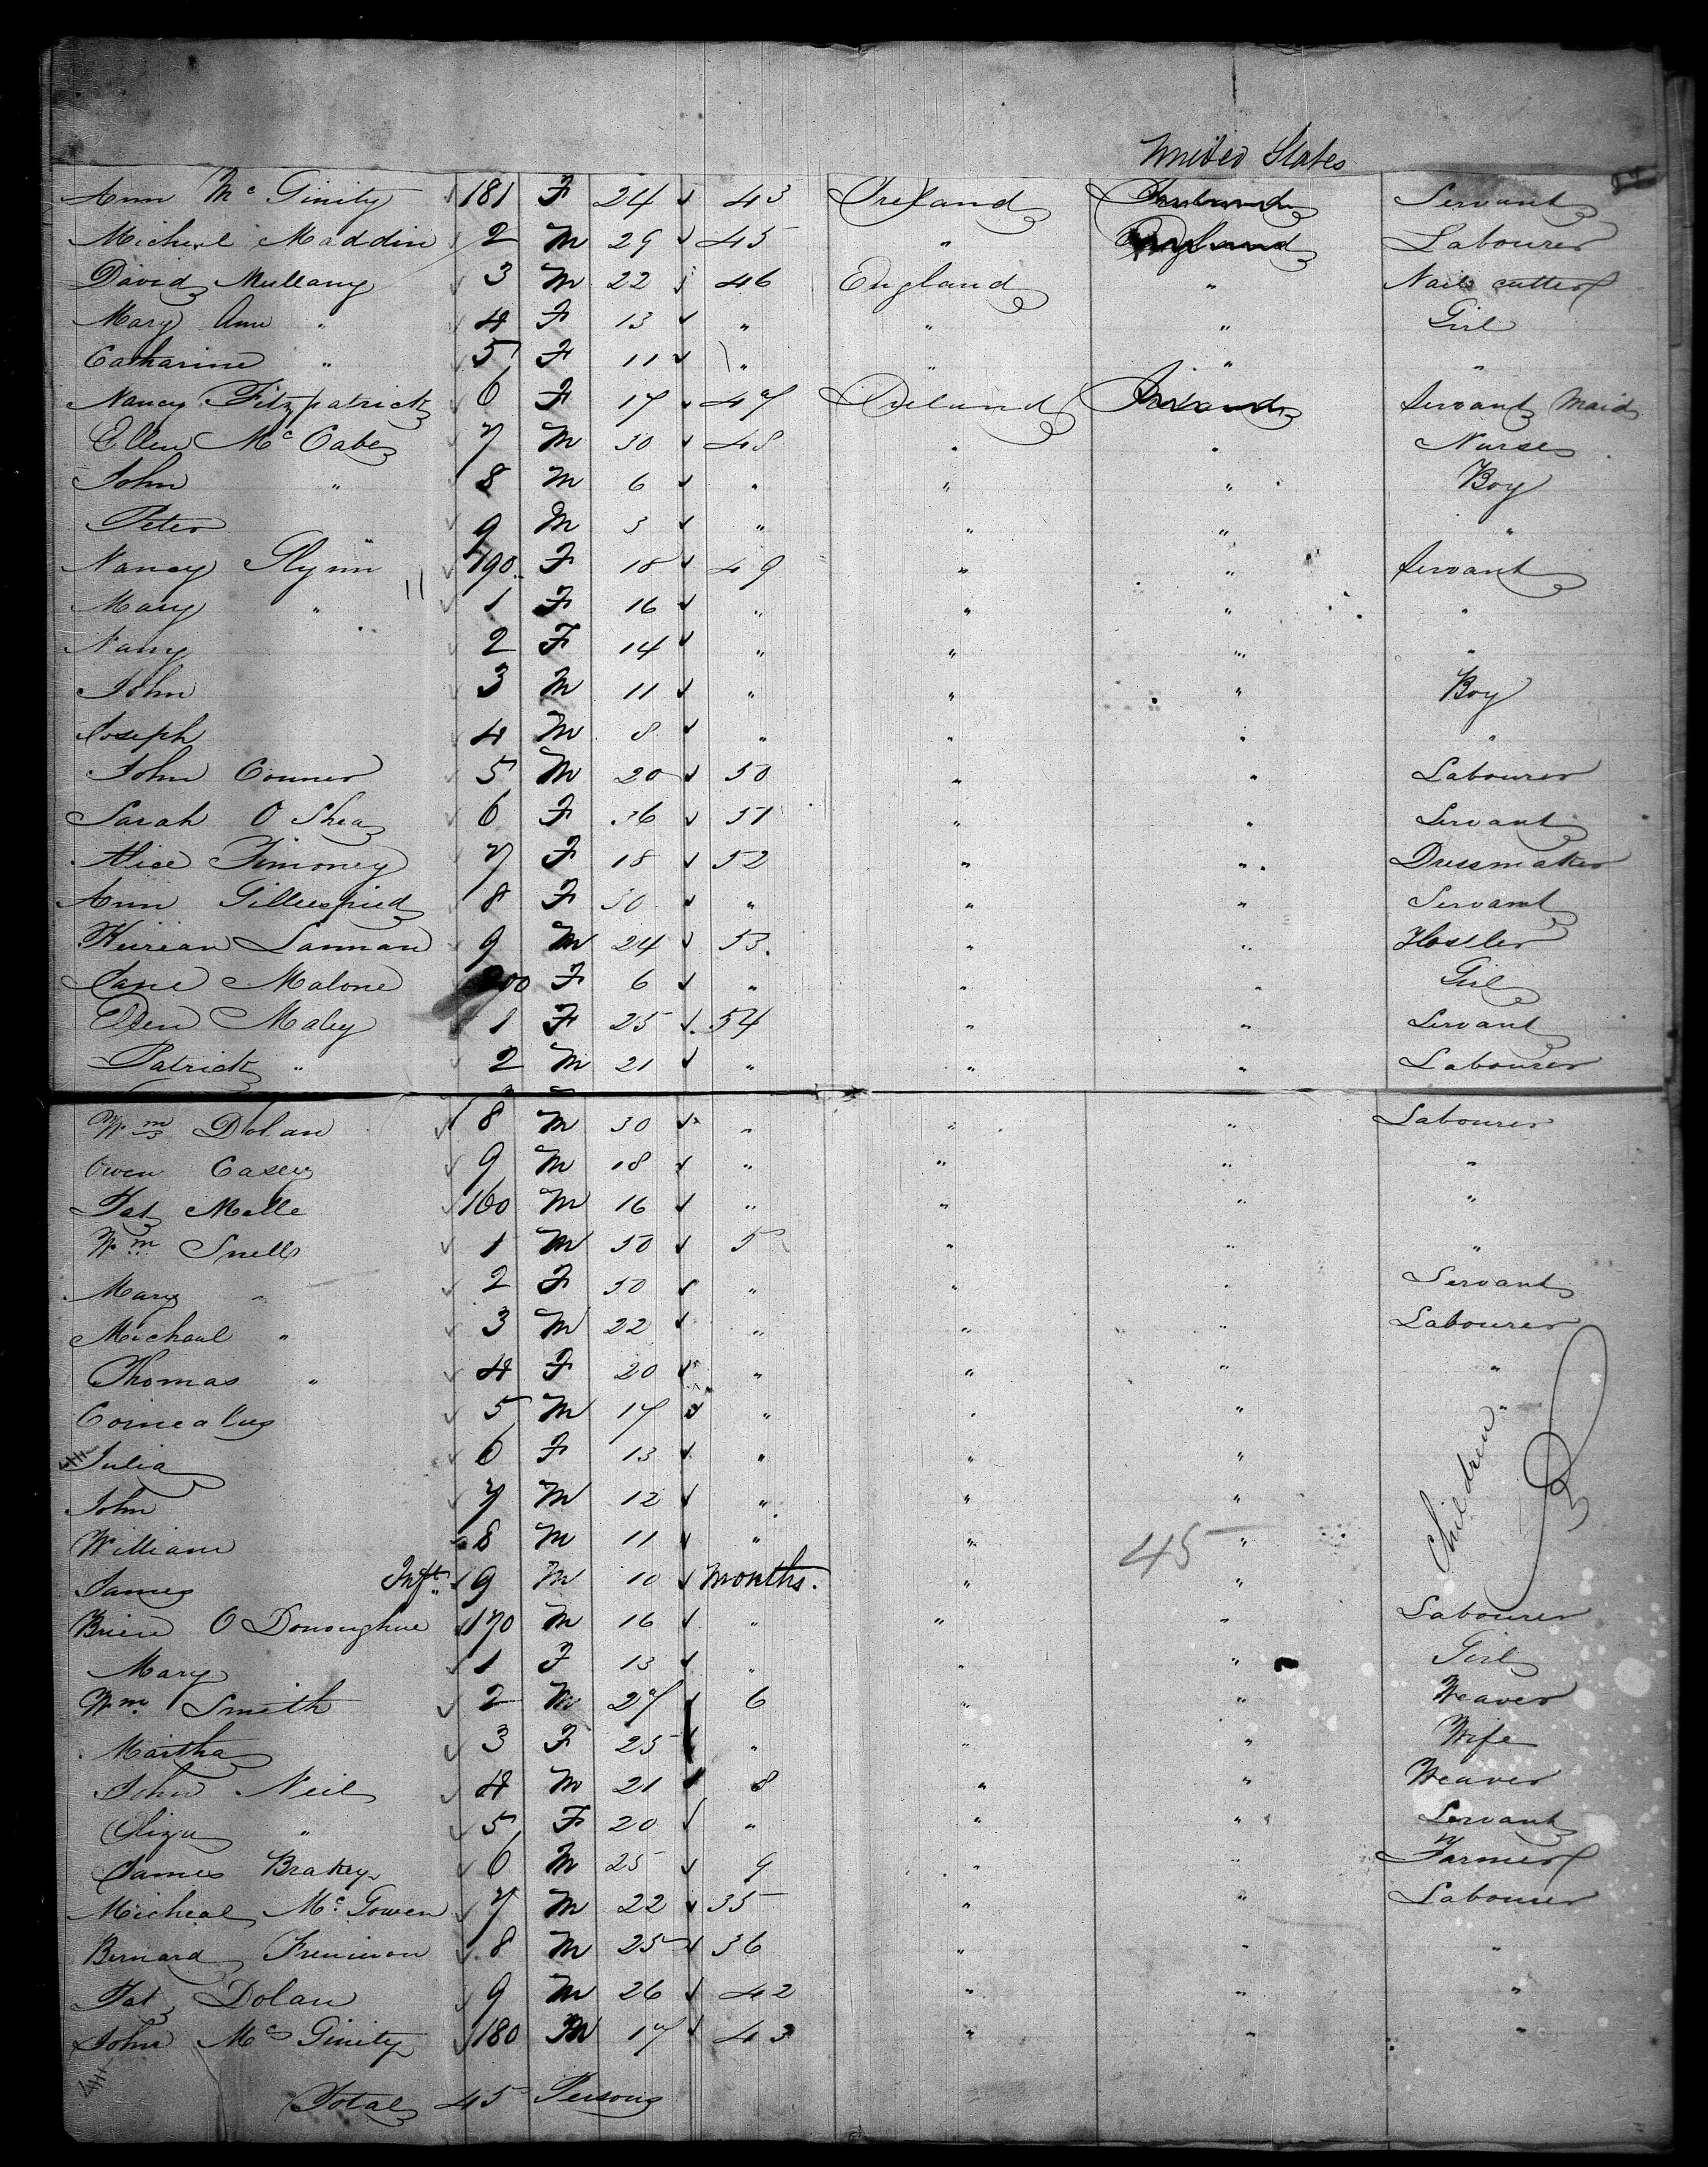 United States
Ann McGinity 181 F 24 43 Ireland Servant
Micheal Maddin 2 M 29 45 " England Labourer
David Mullany 3 M 22 46 England " Nail cutter
Mary Ann " 4 F 13 " " " Girl
Catharine " 5 F 11 " " " "
Nancy Fitzpatrick 6 F 17 47 Ireland Ireland Servant Maid
Ellen McCabe 7 M 30 48 " " Nurse
John " 8 M 6 " " " Boy
Peter " 9 M 3 " " " "
Nancy Glynn 190 F 18 49 " " Servant
Mary " 1 F 16 " " " "
Nany 2 F 14 " " " "
John 3 M 11 " " " Boy
Joseph 4 M 8 " " " "
John Conner 5 M 20 50 " " Labourer
Sarah O Shea 6 F 36 51 " " Servant
Alice Timoney 7 F 18 52 " " Dressmaker
Ann Gillespied 8 F 30 " " " Servant
Keirean Lannan 9 M 24 53 " " Hostler
Jane Malone 200 F 6 " " " Girl
Ellen Maley 1 F 25 54 " " Servant
Patrick " 2 M 21 " " " Labourer
Wm Dolan 8 M 30 " " " Labourer
Owen Casey 9 M 18 " " " "
Pat Melle 160 M 16 " " " "
Wm Snell 1 M 50 5 " " "
Mary " 2 F 50 " " " Servant
Micheal " 3 M 22 " " " Labourer
Thomas " 4 F 20 " " " "
Cornealus 5 M 17 " " " "
Julia 6 F 13 " " " Children
John 7 M 12 " " "
William 8 M 11 " " 45 "
James Inft 9 M 10 months. " "
Brien O Donoughue 170 M 16 " " " Labourer
Mary 1 F 13 " " " Girl
Wm Smith 2 M 27 6 " " Weaver
Martha 3 F 25 " " " Wife
John Neil 4 M 21 8 " " Weaver
Eliza " 5 F 20 " " " Servant
James Brakey 6 M 25 9 " " Farmer
Micheal McGowen 7 M 22 35 " " Labourer
Bernard 8 M 25 36 " " "
Pat Dolan 9 M 26 42 " " "
John McGinity 180 M 17 43 " " "
Total 45 Persons